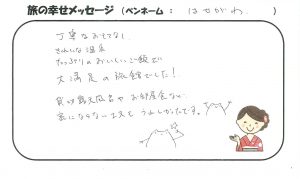 旅の幸せメッセージ(ペンネーム : はせがわ )
丁寧なおもてなし
きれいな温泉
たっぷりのおいしいご飯で
大満足の旅館でした!
貸切露天風呂やお部屋食など
気にならない工夫もうれしかったです。